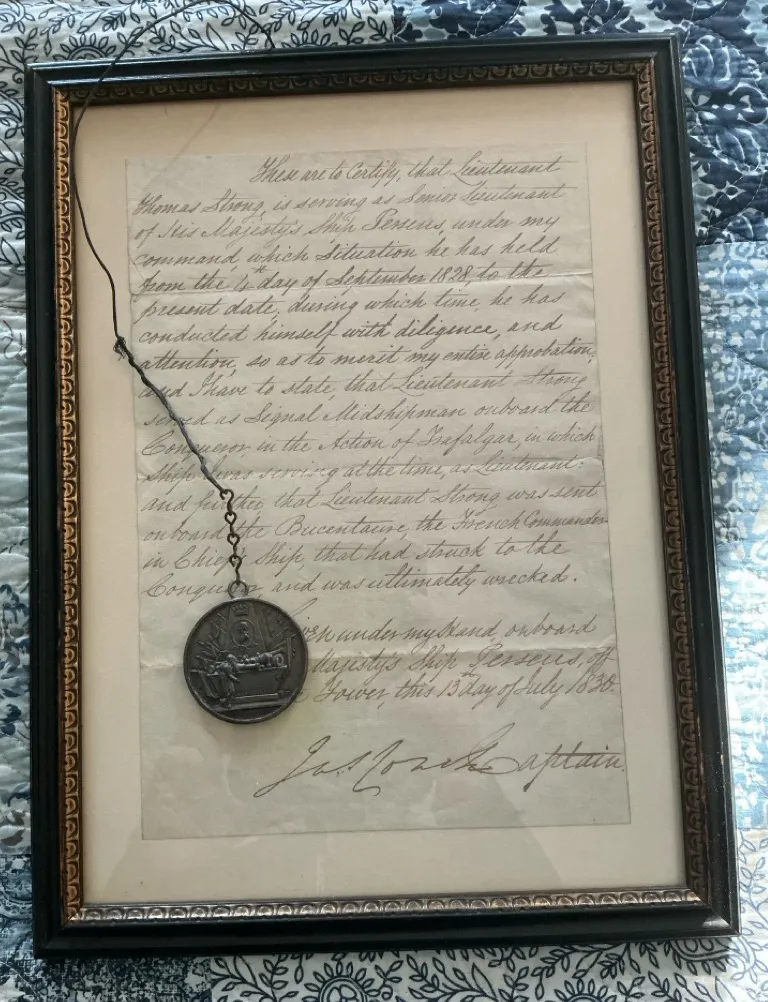 These are to Certify, that Lieutenant
Thomas Strong, is serving as Senior Lieutenant
of His Majesty's Ship Perseus, under my
command, which situation he has held
from the 4th day of September 1828, to the
present date, during which time, he has
conducted himself with diligence, and
attention, so as to merit my entire approbation,
and I have to state, that Lieutenant Strong
served as Signal Midshipman onboard the
Conqueror in the Action of Trafalgar, in which
Ship I was serving at the time, as Lieutenant:
and further, that Lieutenant Strong was sent
onboard the Bucentaure, the French Commander
in Chief's Ship, that had struck to the
Conqueror, and was ultimately wrecked.
under my Hand, onboard
Majesty's Ship Perseus, off
Tower, this 13 day of July 1830.
Jas Couch Captain.